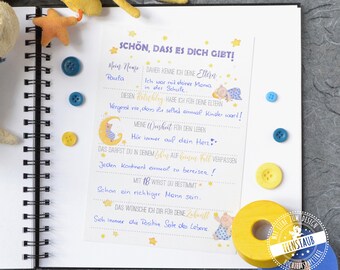 SCHÖN, DASS ES DICH GIBT!
Mein Name
DAHER KENNE ICH DEINE Eltern
Ich war mit deiner Mama
in der Schule.
DIESEN Ratschlag HABE ICH FÜR DEINE ELTERN
Vergesst nie, dass ihr selbst einmal Kinder wart!
MEINE Weisheit FÜR DEIN LEBEN
Hör immer auf dein Herz!
DAS DARFST DU IN DEINEM Leben AUF KEINEN Fall VERPASSEN
Jeden Kontinent einmal zu bereisen!
MIT 18 WIRST DU BESTIMMT
Schon ein richtiger Mann sein.
DAS WÜNSCHE ICH DIR FÜR DEINE Zukunft
Sieh immer die Positive Seite des Lebens
EENSTAUB